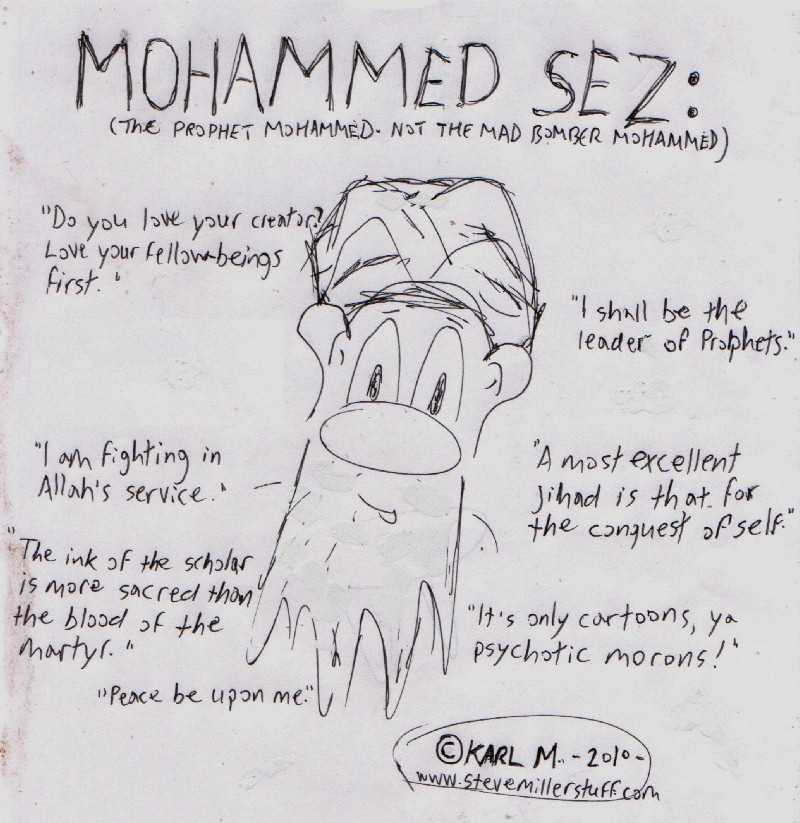 MOHAMMED SEZ:
(THE PROPHET MOHAMMED- NOT THE MAD BOMBER MOHAMMED)
"Do you love your creator?
Love your fellow-beings
first."
"I shall be the
leader of Prophets."
"I am fighting in
Allah's service."
"A most excellent
jihad is that for
the conquest of self."
"The ink of the scholar
is more sacred than
the blood of the
martyr."
"It's only cartoons, ya
psychotic morons!"
"Peace be upon me."
© KARL M. -2010-
www.stevemillerstuff.com